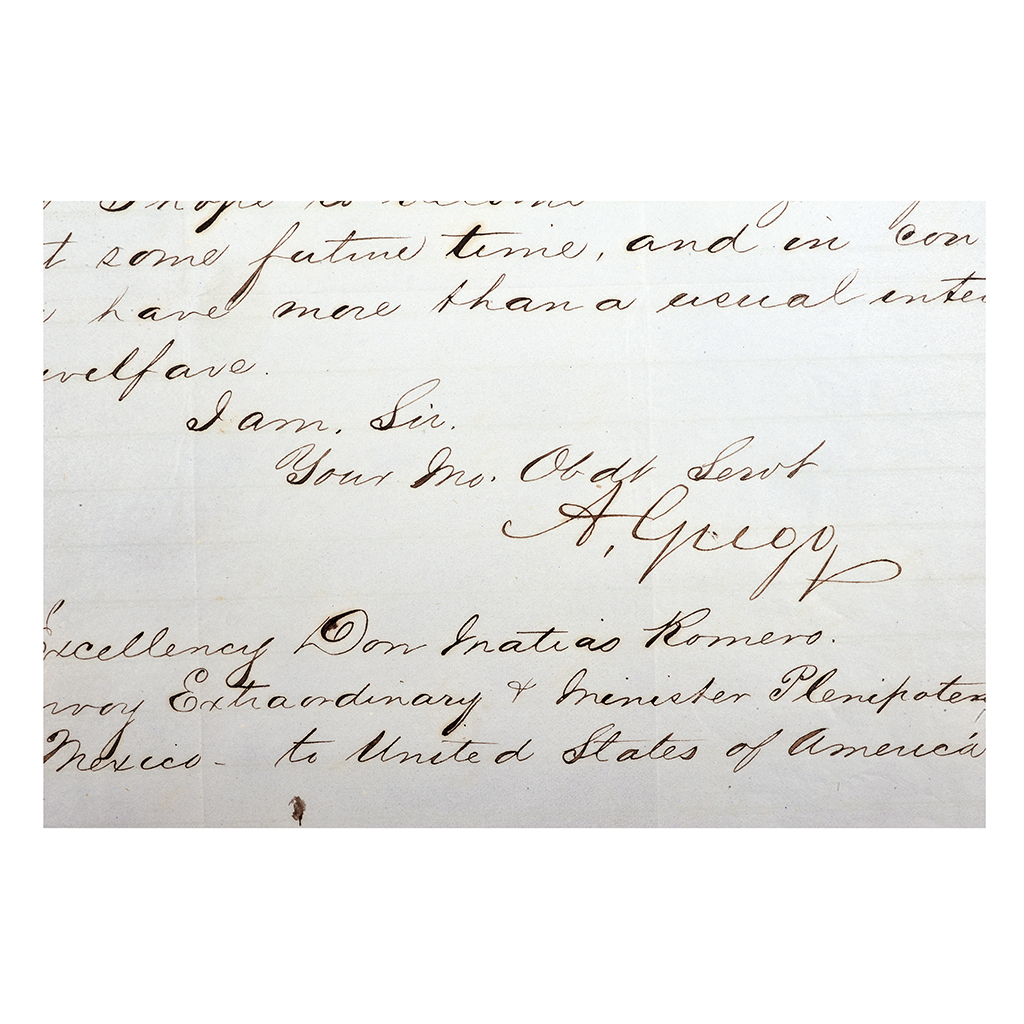 I hope to become
t some future time, and in con
have more than a usual inter
welfare.
I am, Sir.
Your Mo. Obdt Servt
A, Gregg
Excellency Don Matias Romero.
nvoy Extraordinary & Minister Plenipoten
Mexico - to United States of America